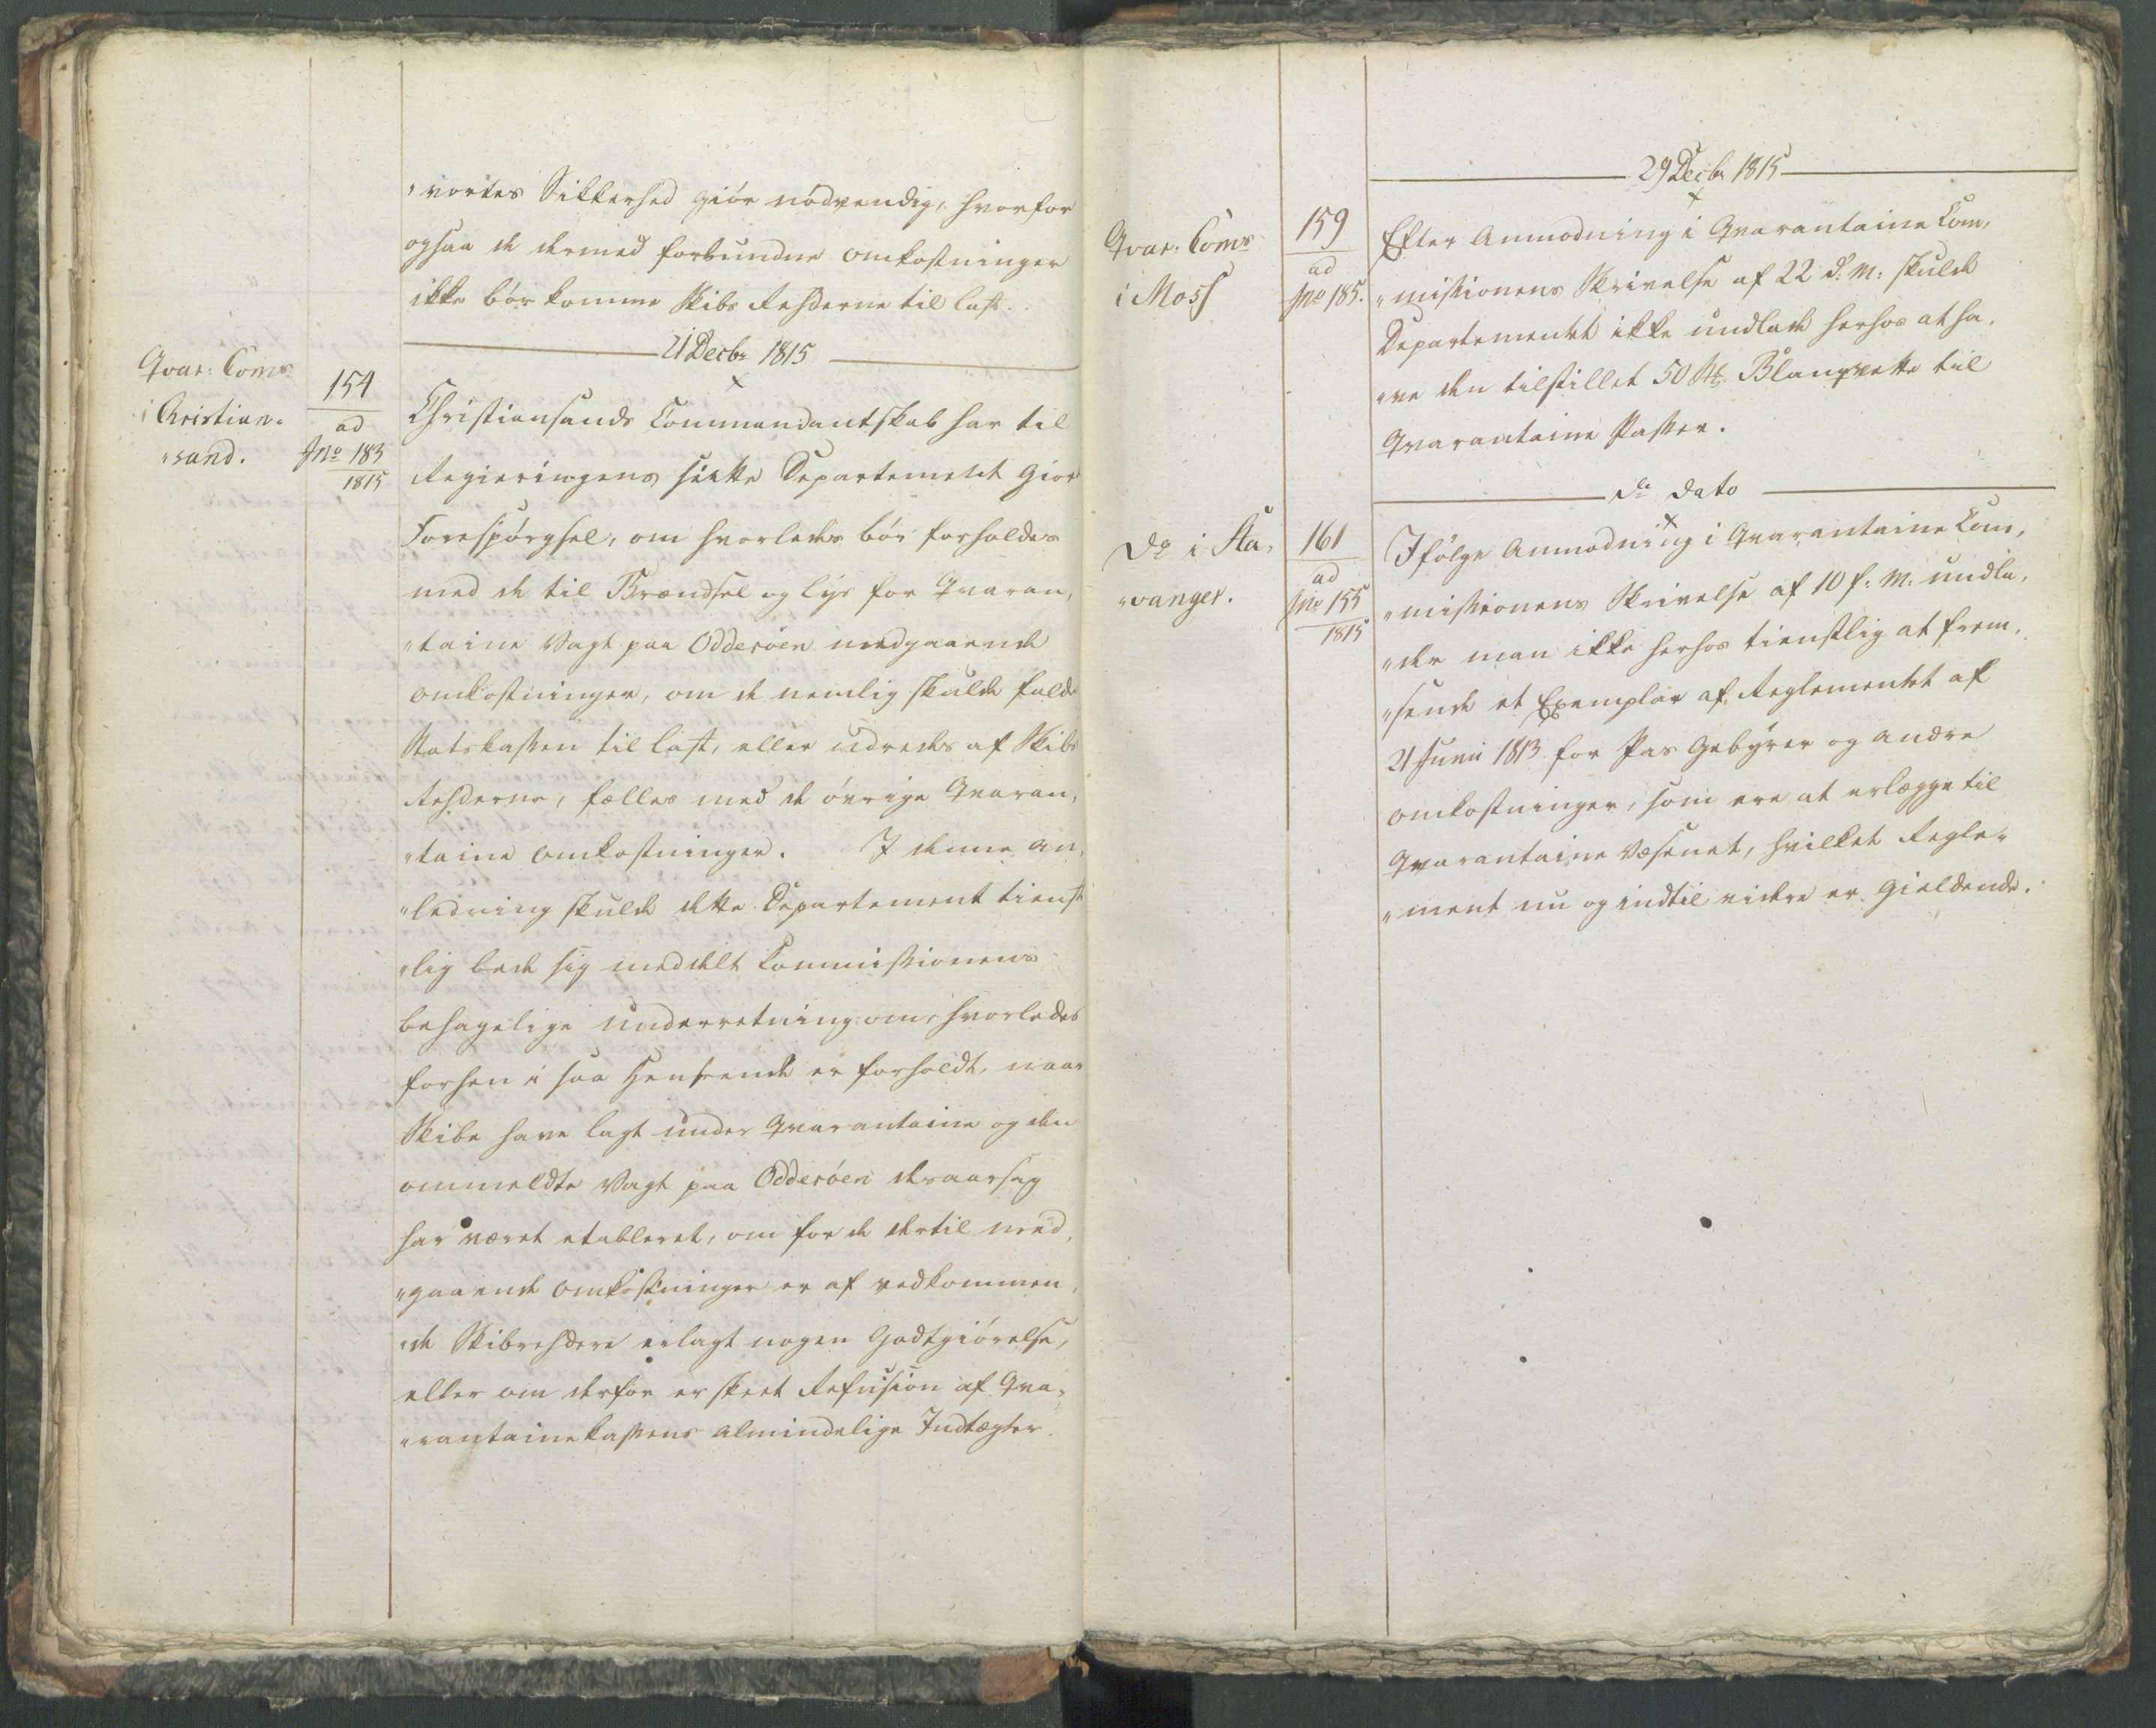 „vortes Sikkerhed giør nødvendig, hvorfor
ogsaa de dermed forbundne omkostninger
ikke bør komme Skibs Rehderne til last.
21 Decbr 1815
Qvar: Coms
i Christian„
„sand.
154
ad
J No 183
1815
Christiansands Commandantskab har til
Regieringens siette Departement gior
Forespørgsel, om hvorledes bør forholdes
med de til Brændsel og lys for Qvaran„
„taine Vagt paa Odderöen medgaaende
omkostninger, om de nemlig skulde falde
Statskassen til last, eller udredes af Skibs
Rehderne, fælles med de øvrige Qvaran„
„taine omkostninger. I denne An„
„ledning skulde dette Departement tienst
„lig bede sig meddelt Commissionens
behagelige underretning om, hvorledes
forhen i saa Henseende er forholdt, naar
Skibe have lagt under Qvarantaine og den
ommeldte Vagt paa Odderöen desaarsag
har været etableret, om for de dertil med„
„gaaende omkostninger er af vedkommen„
„de Skibsrehdere erlagt nogen Godtgiørelse,
eller om derfor er skeet Refusion af Qva„
„rantainekassens almindelige Indtægter.
29 Decbr 1815
Qvar. Coms
i Moss
159
ad
J No 185.
Efter Anmodning i Qvarantaine Com„
„missionens Skrivelse af 22 d: M: skulde
Departementet ikke undlade herhos at ha„
„ve den tilstillet 50 Blanqvette til
Qvarantaine Passer.
do dato
Do i Sta„
„vanger.
161
ad
J No 155
1815
Ifølge Anmodning i Qvarantaine Com„
„missionens Skrivelse af 10 f: M: undla„
„der man ikke herhos tienstlig at frem„
„sende et Exemplar af Reglementet af
21 Junii 1813 for Pas Gebyrer og andre
omkostninger, som ere at erlægge til
Qvarantaine Væsenet, hvilket Regle„
„ment nu og indtil videre er gieldende.